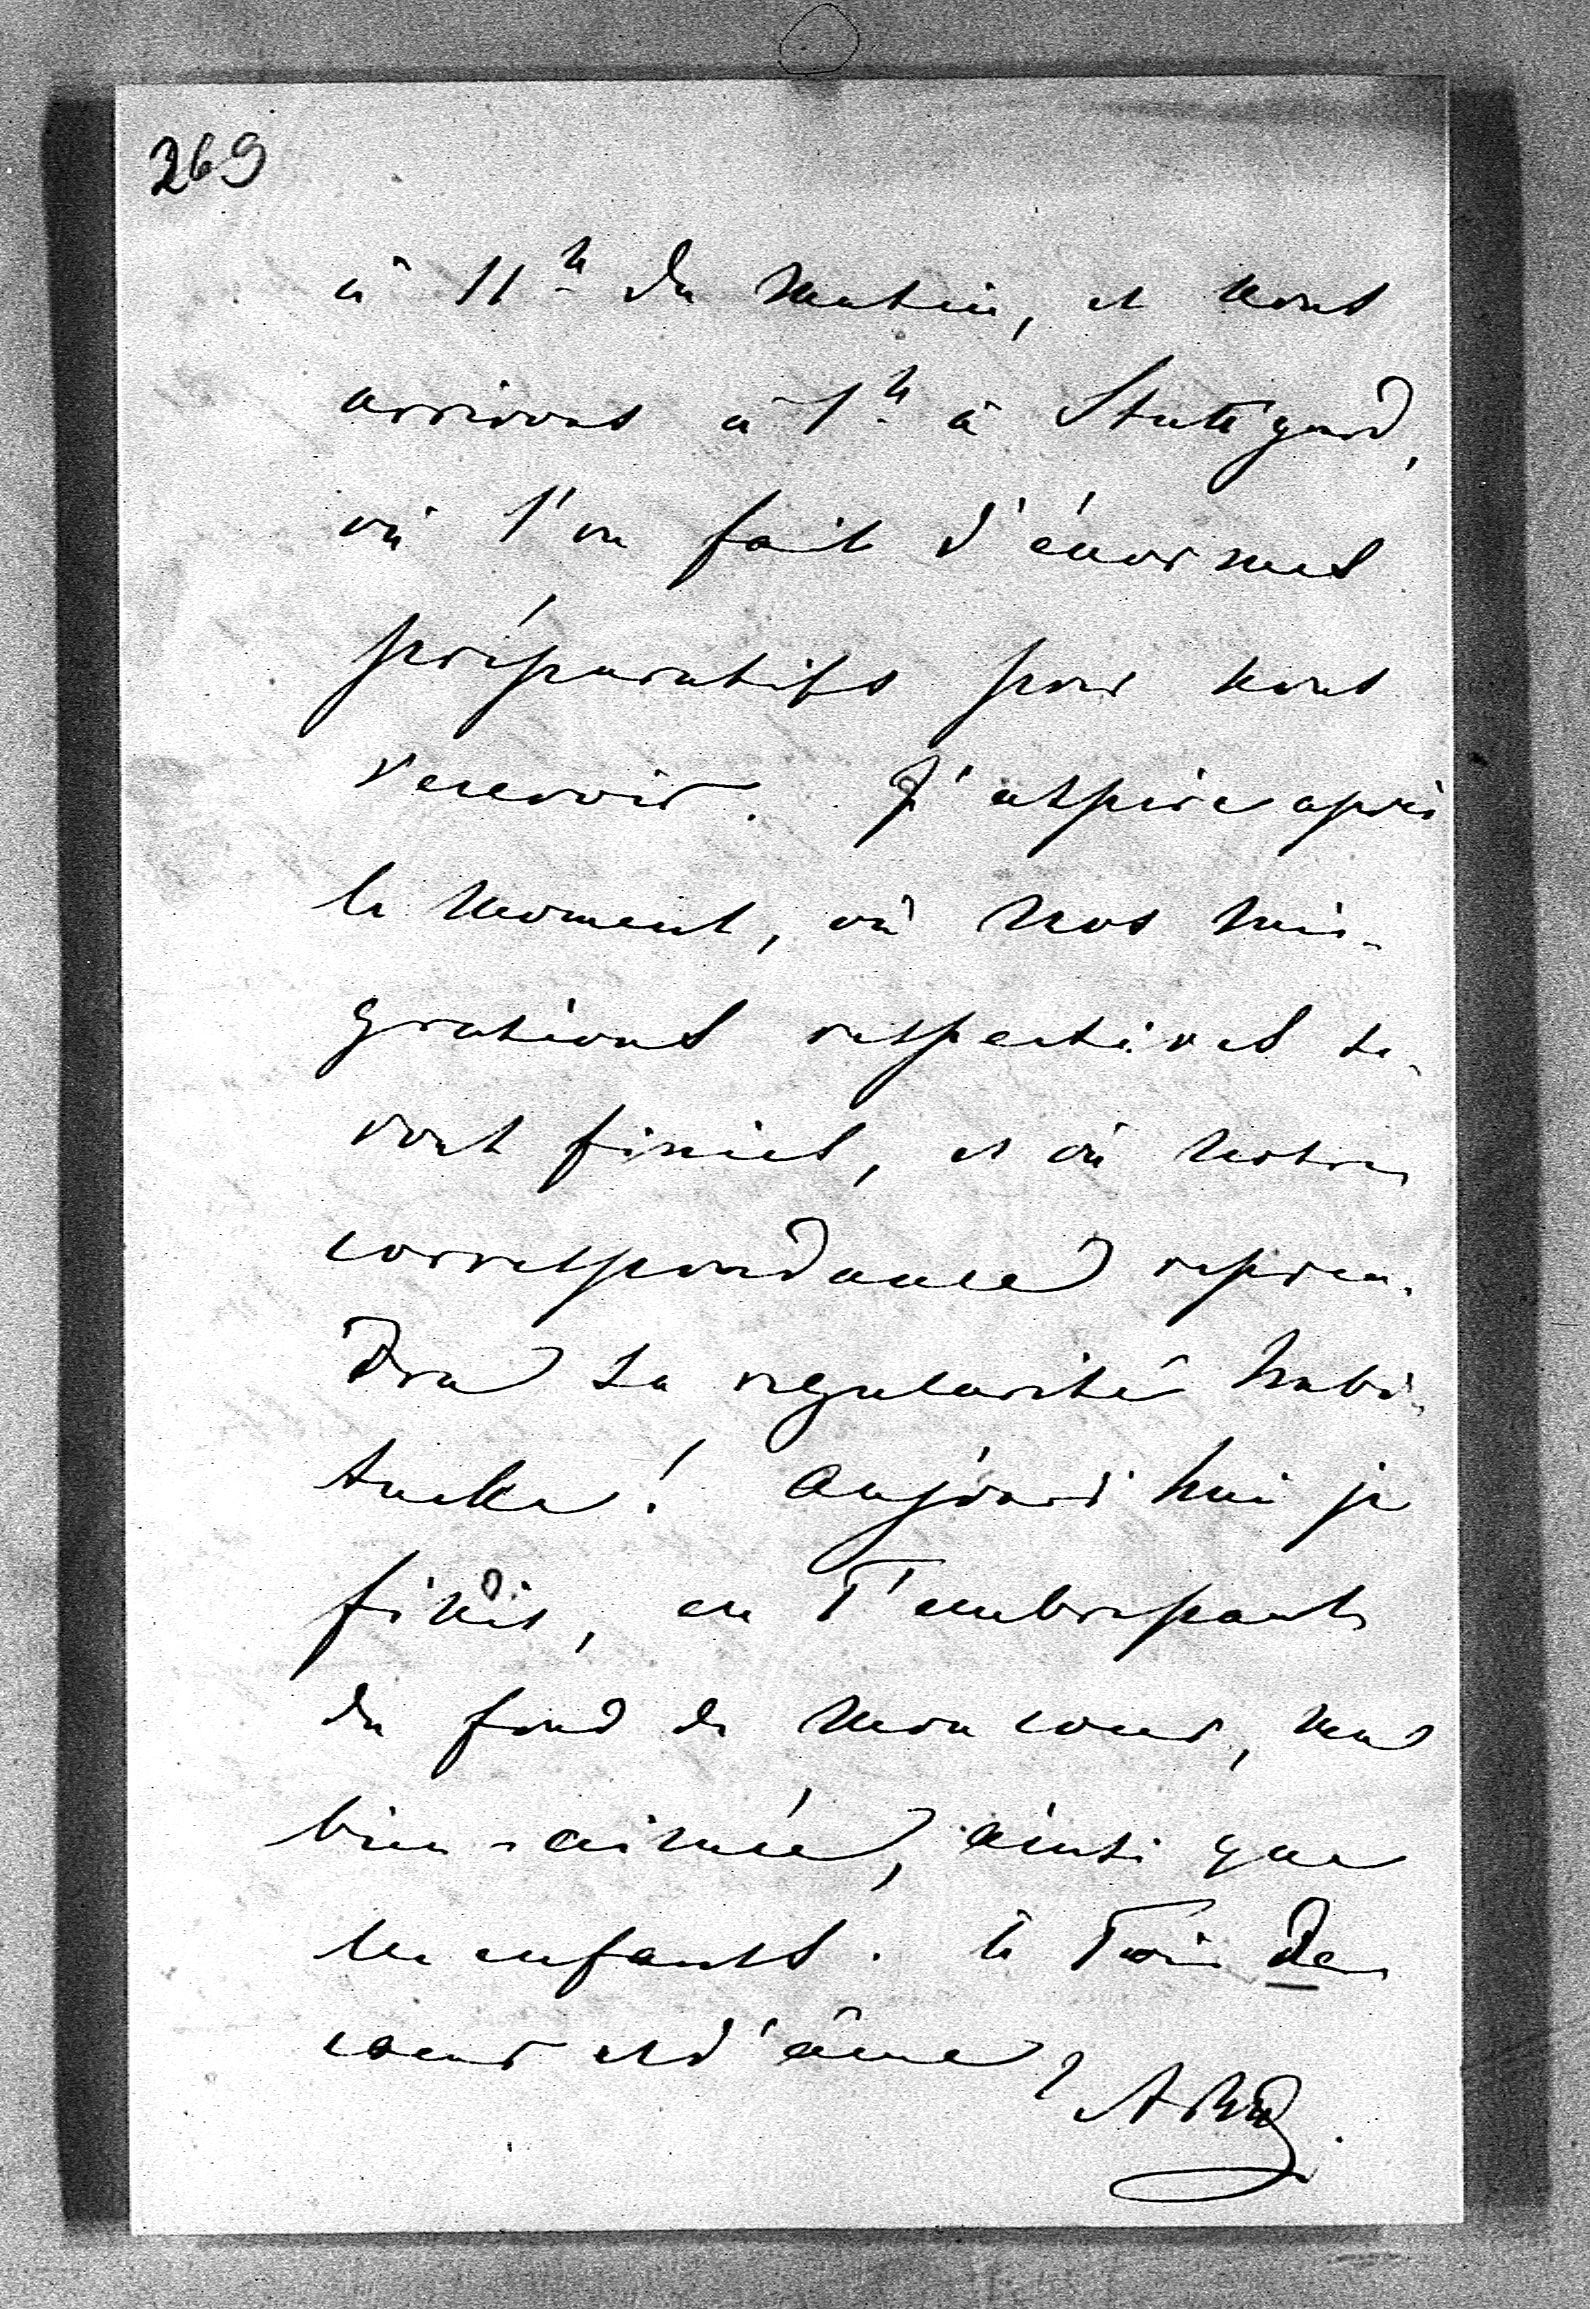 269
à 11h du matin, et nous
arrivons à 1h à Stuttgard,
où l'on fait d'énormes
préparatifs pour nous
recevoir. J'aspire après
le moment, où nos mi-
grations respectives se-
ront finies, et où notre
correspondance repren-
dra sa regularité habi-
tuelle! Aujourd'hui je
finis, en T'embrassant
du fond de mon coeur, ma
bien-aimée, ainsi que
les enfants. à Toi de
coeur et d'âme,